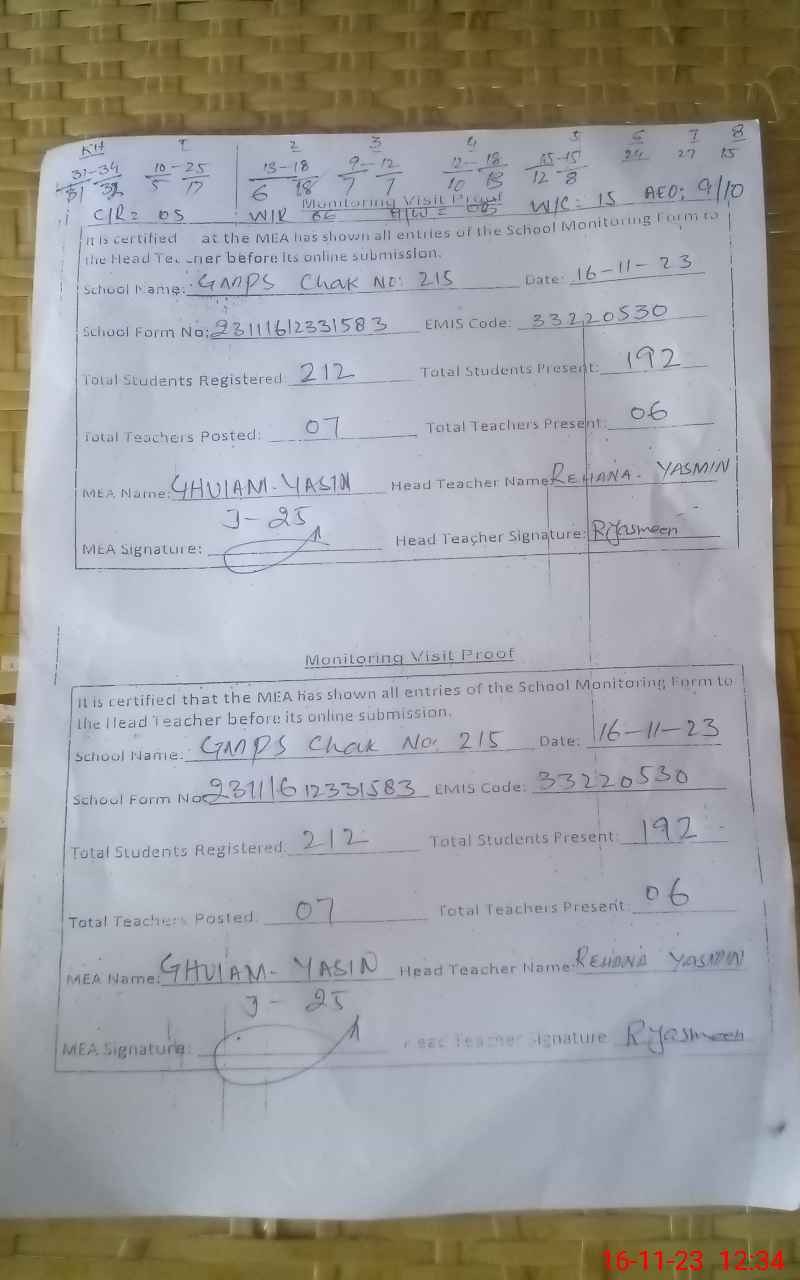 KH 1 2 3 4 5 6 7 8
31-34 10-25 13-18 9-12 12-18 15-15 24 27 15
31 32 5 17 6 18 7 7 10 13 12 8
C/R= 05 W/R 06 H/W= W/C: 15 AEO: 9/10
Monitoring Visit Proof
It is certified at the MEA has shown all entries of the School Monitoring Form to
the Head before its online submission.
School Name: GMPS Chak No: 215 Date: 16-11-23
School Form No: 23111612331583 EMIS Code: 33220530
Total Students Registered: 212 Total Students Present: 192
Total Teachers Posted: 07 Total Teachers Present: 06
MEA Name: GHULAM-YASIN Head Teacher Name: REHANA-YASMIN
J-25
MEA Signature: Head Teacher Signature: RYasmeen
Monitoring Visit Proof
It is certified that the MEA has shown all entries of the School Monitoring Form to
the Head Teacher before its online submission.
School Name: GMPS Chak No: 215 Date: 16-11-23
School Form No 23111612331583 EMIS Code: 33220530
Total Students Registered: 212 Total Students Present: 192
Total Teachers Posted: 07 Total Teachers Present: 06
MEA Name: GHULAM-YASIN Head Teacher Name: REHANA YASMIN
J-25
MEA Signature: Head Teacher Signature RYasmeen
16-11-23 12:34